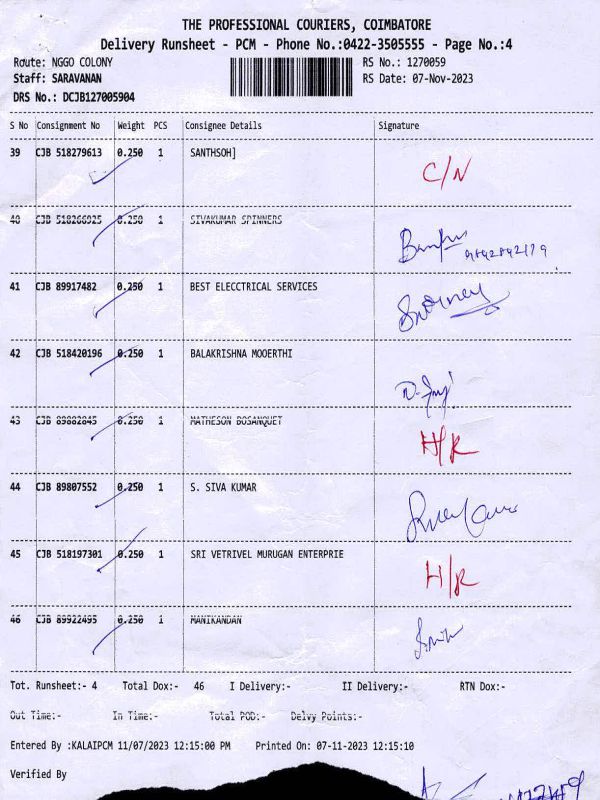 THE PROFESSIONAL COURIERS, COIMBATORE
Delivery Runsheet - PCM - Phone No.:0422-3505555 - Page No.:4
Route: NGGO COLONY RS No.: 1270059
Staff: SARAVANAN RS Date: 07-Nov-2023
DRS No.: DCJB127005904
S No Consignment No Weight PCS Consignee Details Signature
39 CJB 518279613 0.250 1 SANTHSOH] C/N
40 CJB 518266925 0.250 1 SIVAKUMAR SPINNERS
41 CJB 89917482 0.250 1 BEST ELECCTRICAL SERVICES
42 CJB 518420196 0.250 1 BALAKRISHNA MOOERTHI
43 CJB 89882845 0.250 1 MATHESON BOSANQUET H/R
44 CJB 89807552 0.250 1 S. SIVA KUMAR
45 CJB 518197301 0.250 1 SRI VETRIVEL MURUGAN ENTERPRIE H/R
46 CJB 89922495 0.250 1 MANIKANDAN
Tot. Runsheet:- 4 Total Dox:- 46 I Delivery:- II Delivery:- RTN Dox:-
Out Time:- In Time:- Total POD:- Delvy Points:-
Entered By :KALAIPCM 11/07/2023 12:15:00 PM Printed On: 07-11-2023 12:15:10
Verified By